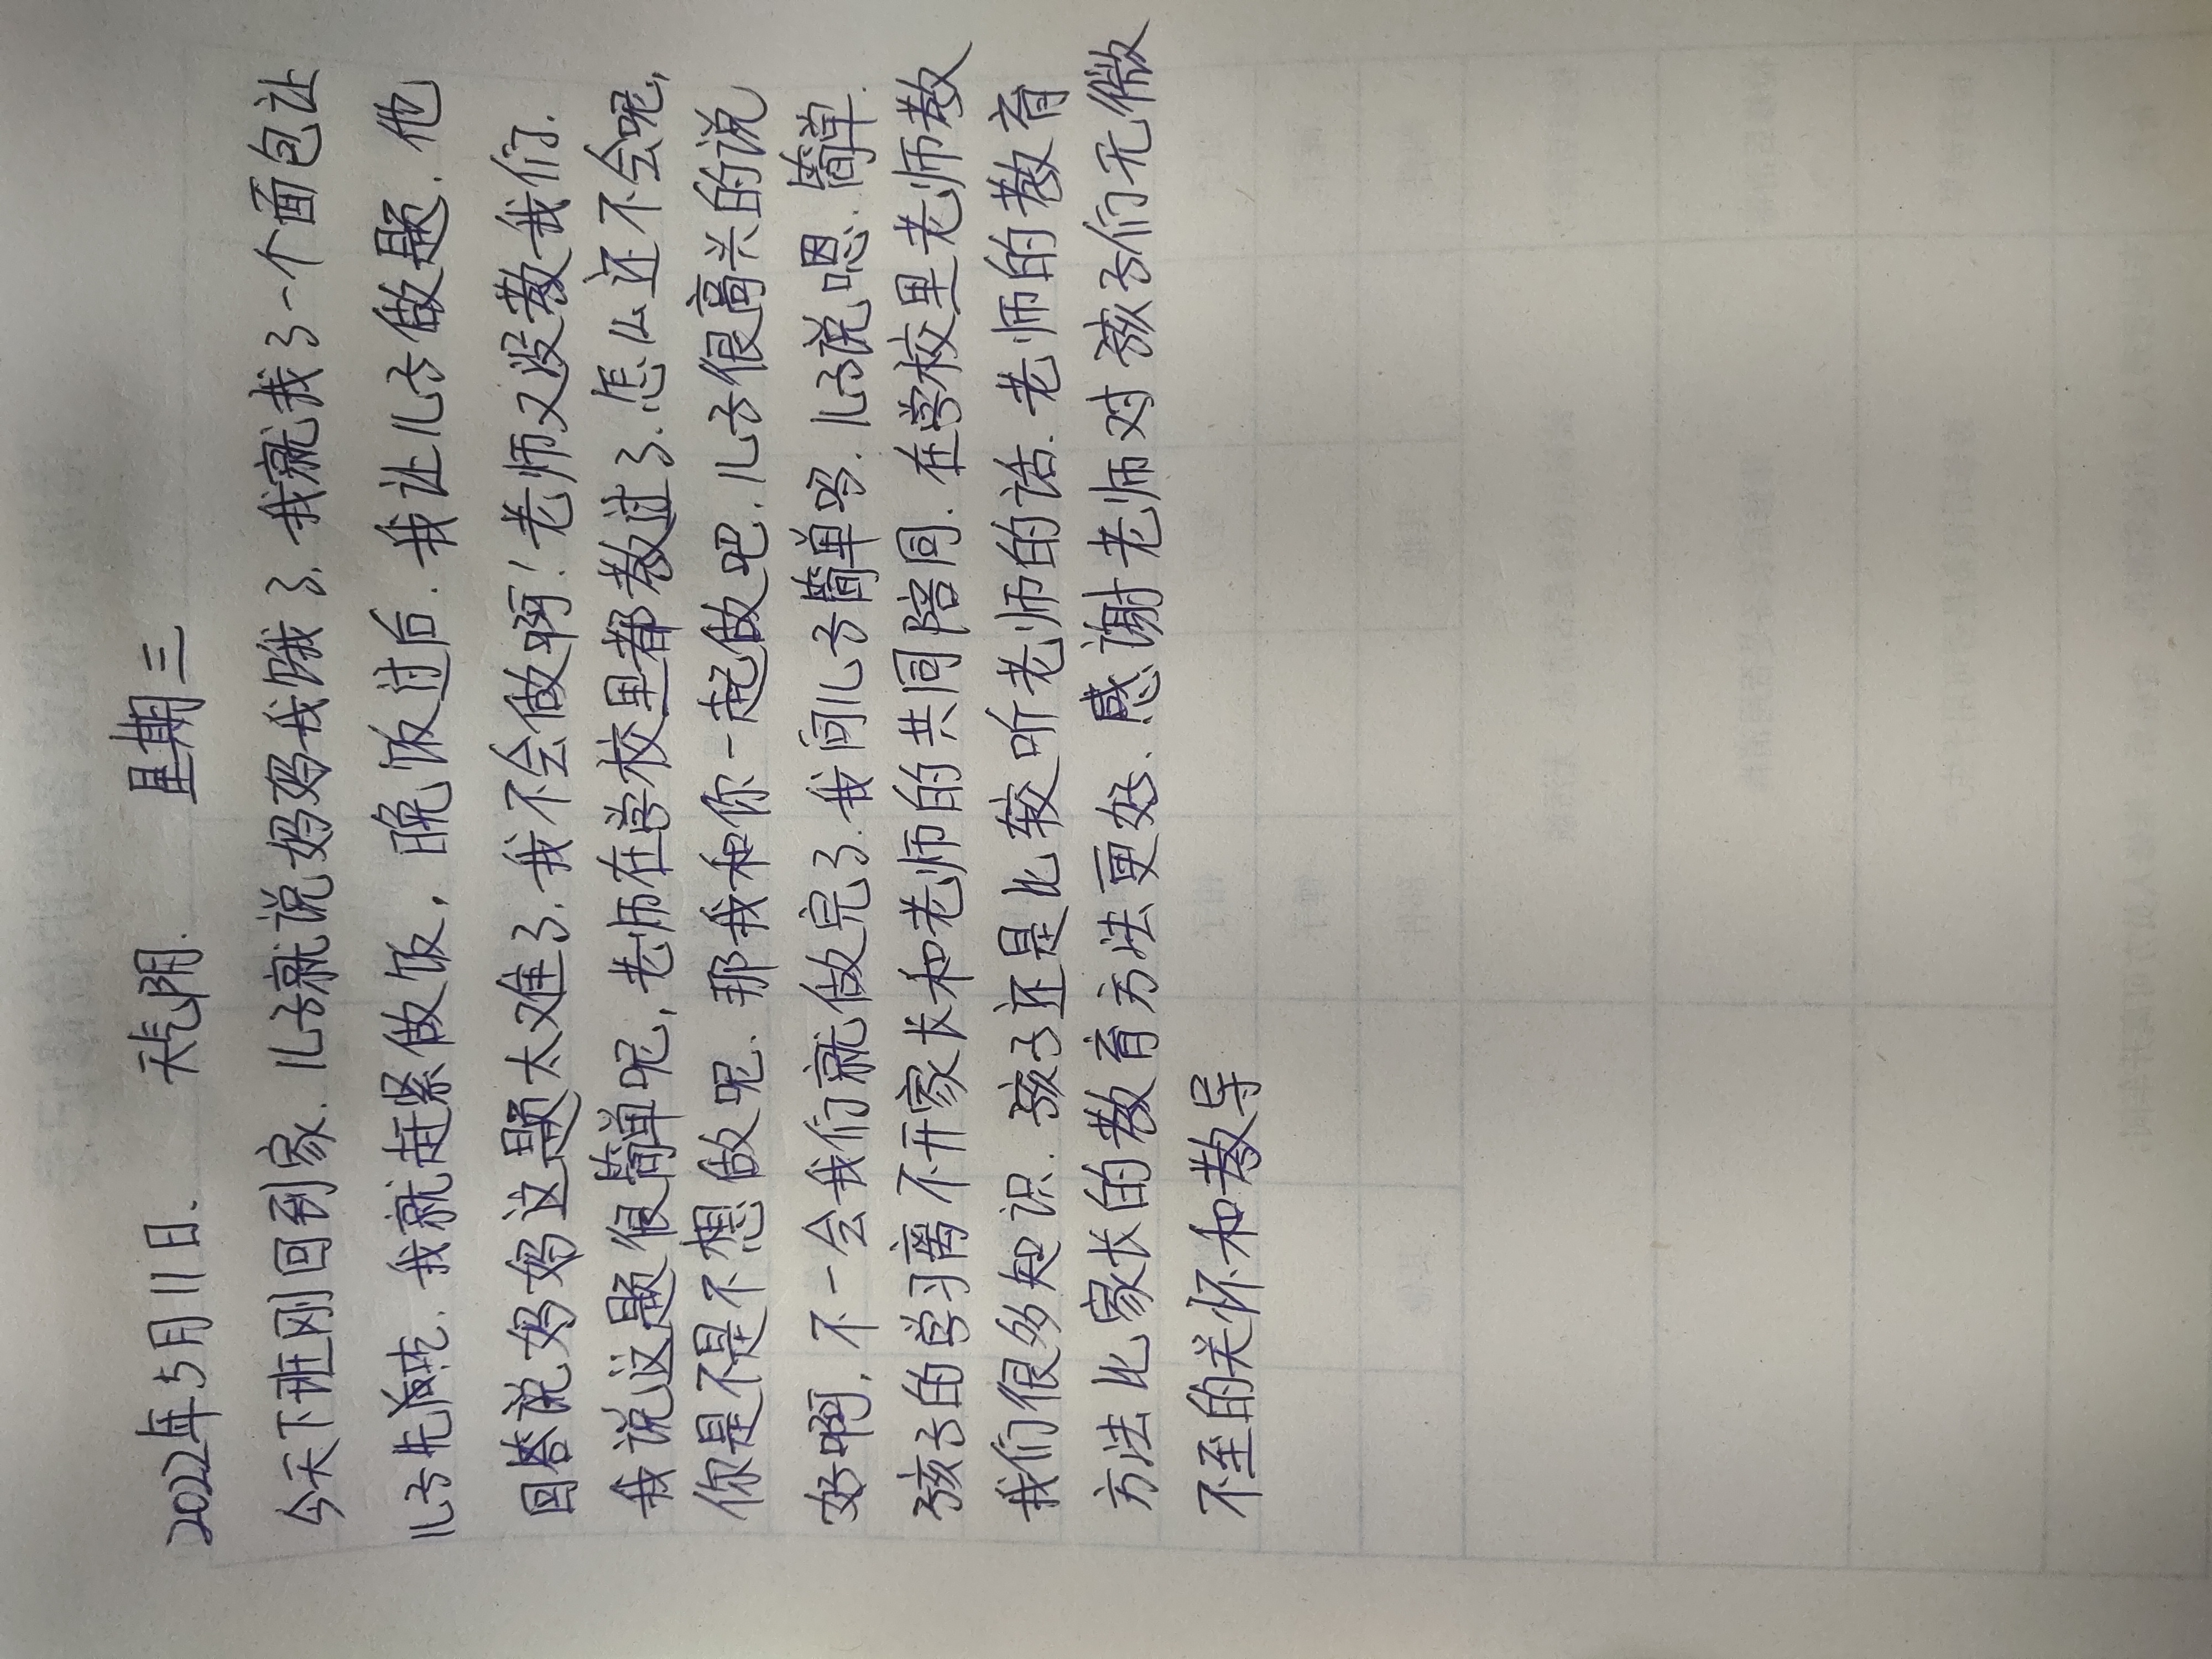 2022年5月11日. 天气阴. 星期三
今天下班刚回到家.儿子就说妈妈我饿了.我就找了一个面包让
儿子先垫吃.我就赶紧做饭,晚饭过后.我让儿子做题.他
回答说妈妈这题太难了.我不会做啊!老师又没教我们.
我说这题很简单呢,老师在学校里都教过了.怎么还不会呢,
你是不是不想做呢.那我和你一起做吧.儿子很高兴的说
好啊,不一会我们就做完了.我问儿子简单吗.儿子说嗯.简单.
孩子的学习离不开家长和老师的共同陪同.在学校里老师教
我们很多知识.孩子还是比较听老师的话.老师的教育
方法比家长的教育方法更好.感谢老师对孩子们无微
不至的关怀和教导